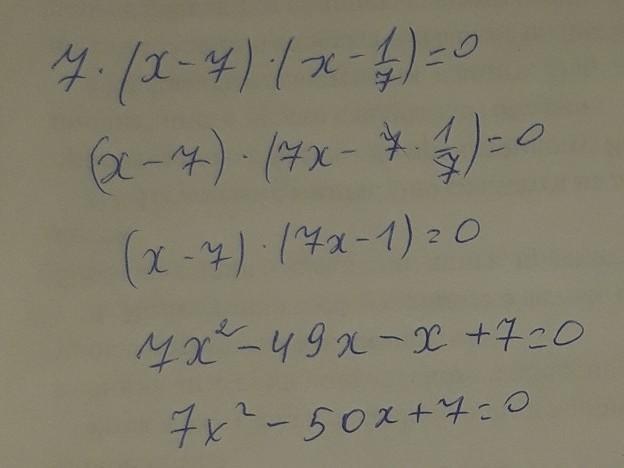 7·(x-7)·(x-1/7)=0
(x-7)·(7x-7·1/7)=0
(x-7)·(7x-1)=0
7x²-49x-x+7=0
7x²-50x+7=0